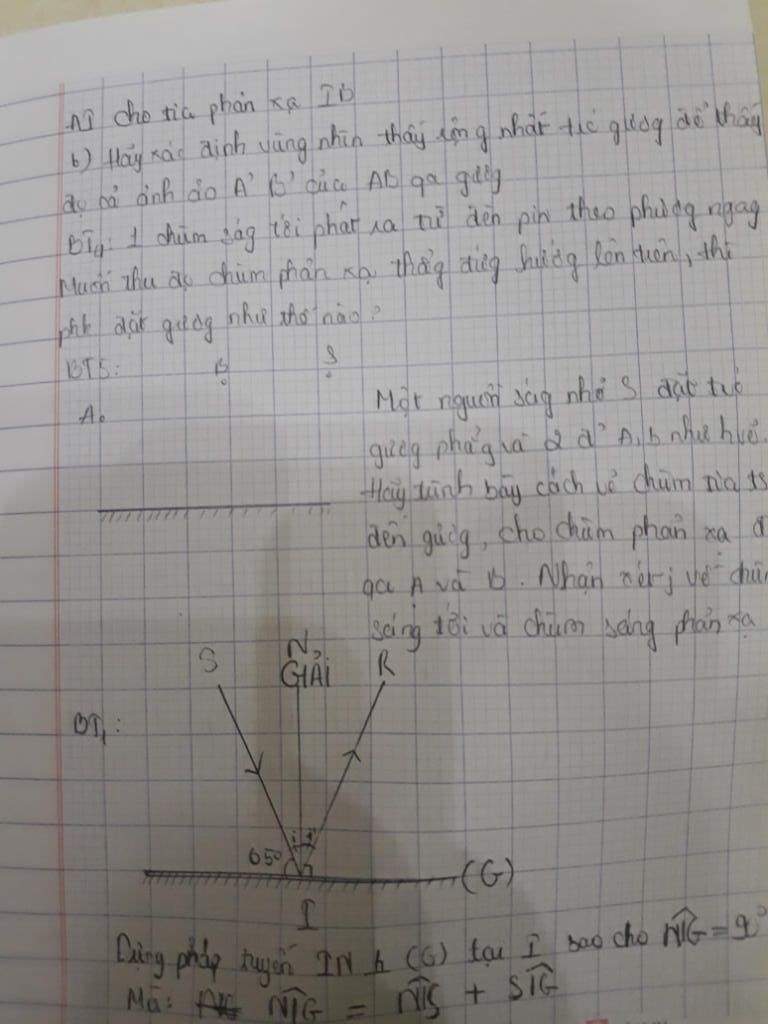 AI cho tia phản xạ Ib
b) Hãy xác định vùng nhìn thấy rộng nhất tưc gương để thấy
đc cả ảnh ảo A' B' của AB qa gưg
BT4: 1 chùm ság tới phát ra từ đèn pin theo phươg ngag
Muốn thu đc chùm phản xạ thẳg đứg hướg lên trên, thì
phk đặt gươg như thế nào?
BT5: B S
A.
Một nguồn ság nhỏ S đặt trc
gươg phẳg và 2 đ' A, b như hvẽ.
Hãy trình bày cách vẽ chùm tia ts
đến gươg, cho chùm phản xạ đ
qa A và B. Nhận xét j về chù
sáng tới và chùm sáng phản xạ
N
GIẢI
S R
BT1:
i i'
65°
(G)
I
Dựng pháp tuyến IN ⊥ (G) tại I sao cho NIG = 90°
Mà: NIG = NIS + SIG